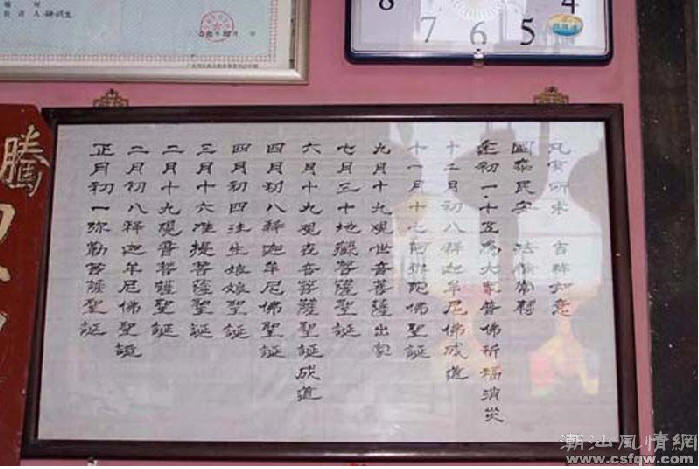 8
7
6
5
4
騰
正月初一弥勒菩薩聖誕
二月初八释迦牟尼佛聖誕
二月十九觀音菩薩聖誕
三月十六准提菩薩聖誕
四月初四注生娘娘聖誕
四月初八释迦牟尼佛聖誕
六月十九观世音菩薩聖誕成道
七月三十地藏菩薩聖誕
九月十九观世音菩薩出家
十一月十七阿弥陀佛聖誕
十二月初八释迦牟尼佛成道
初一·十五為大家普佛祈福消災
國泰民安 法輪常轉
凡有所求 吉祥如意
潮汕風情網
www.csfqw.com